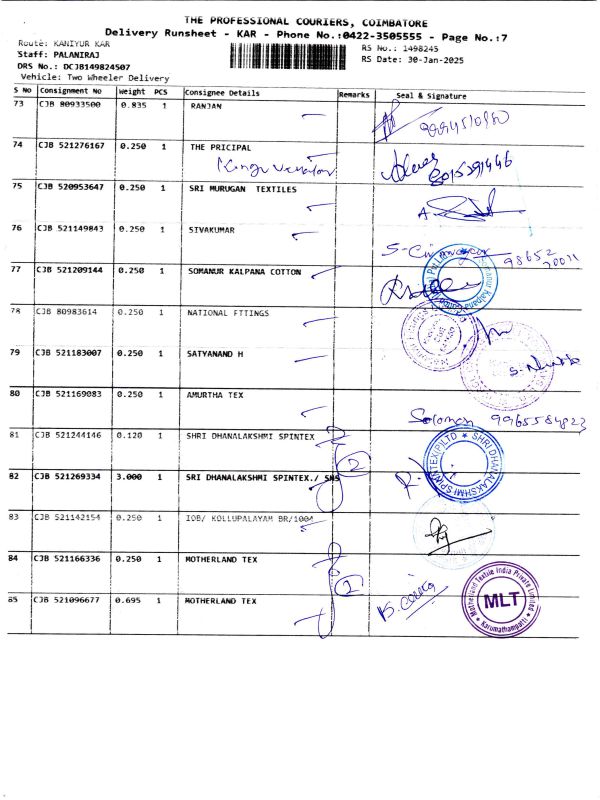 THE PROFESSIONAL COURIERS, COIMBATORE
Delivery Runsheet - KAR - Phone No.:0422-3505555 - Page No.:7
Route: KANIYUR KAR
RS No.: 1498245
Staff: PALANIRAJ
RS Date: 30-Jan-2025
DRS No.: DCJB149824507
Vehicle: Two Wheeler Delivery
S No Consignment No Weight PCS Consignee Details Remarks Seal & Signature
73 CJB 80933500 0.835 1 RANJAN
74 CJB 521276167 0.250 1 THE PRICIPAL
8015291446
75 CJB 520953647 0.250 1 SRI MURUGAN TEXTILES
76 CJB 521149843 0.250 1 SIVAKUMAR
98652
20011
77 CJB 521209144 0.250 1 SOMANUR KALPANA COTTON
78 CJB 80983614 0.250 1 NATIONAL FTTINGS
79 CJB 521183007 0.250 1 SATYANAND H
80 CJB 521169083 0.250 1 AMURTHA TEX
Solomon 9965584823
81 CJB 521244146 0.120 1 SHRI DHANALAKSHMI SPINTEX
2
SHRI DHANALAKSHMI SPINNTEX(P)LTD
82 CJB 521269334 3.000 1 SRI DHANALAKSHMI SPINTEX./ SMS
83 CJB 521142154 0.250 1 IOB/ KOLLUPALAYAM BR/1004
84 CJB 521166336 0.250 1 MOTHERLAND TEX
2
85 CJB 521096677 0.695 1 MOTHERLAND TEX
Motherland Textile India Private Limited
MLT
Karumathampatti